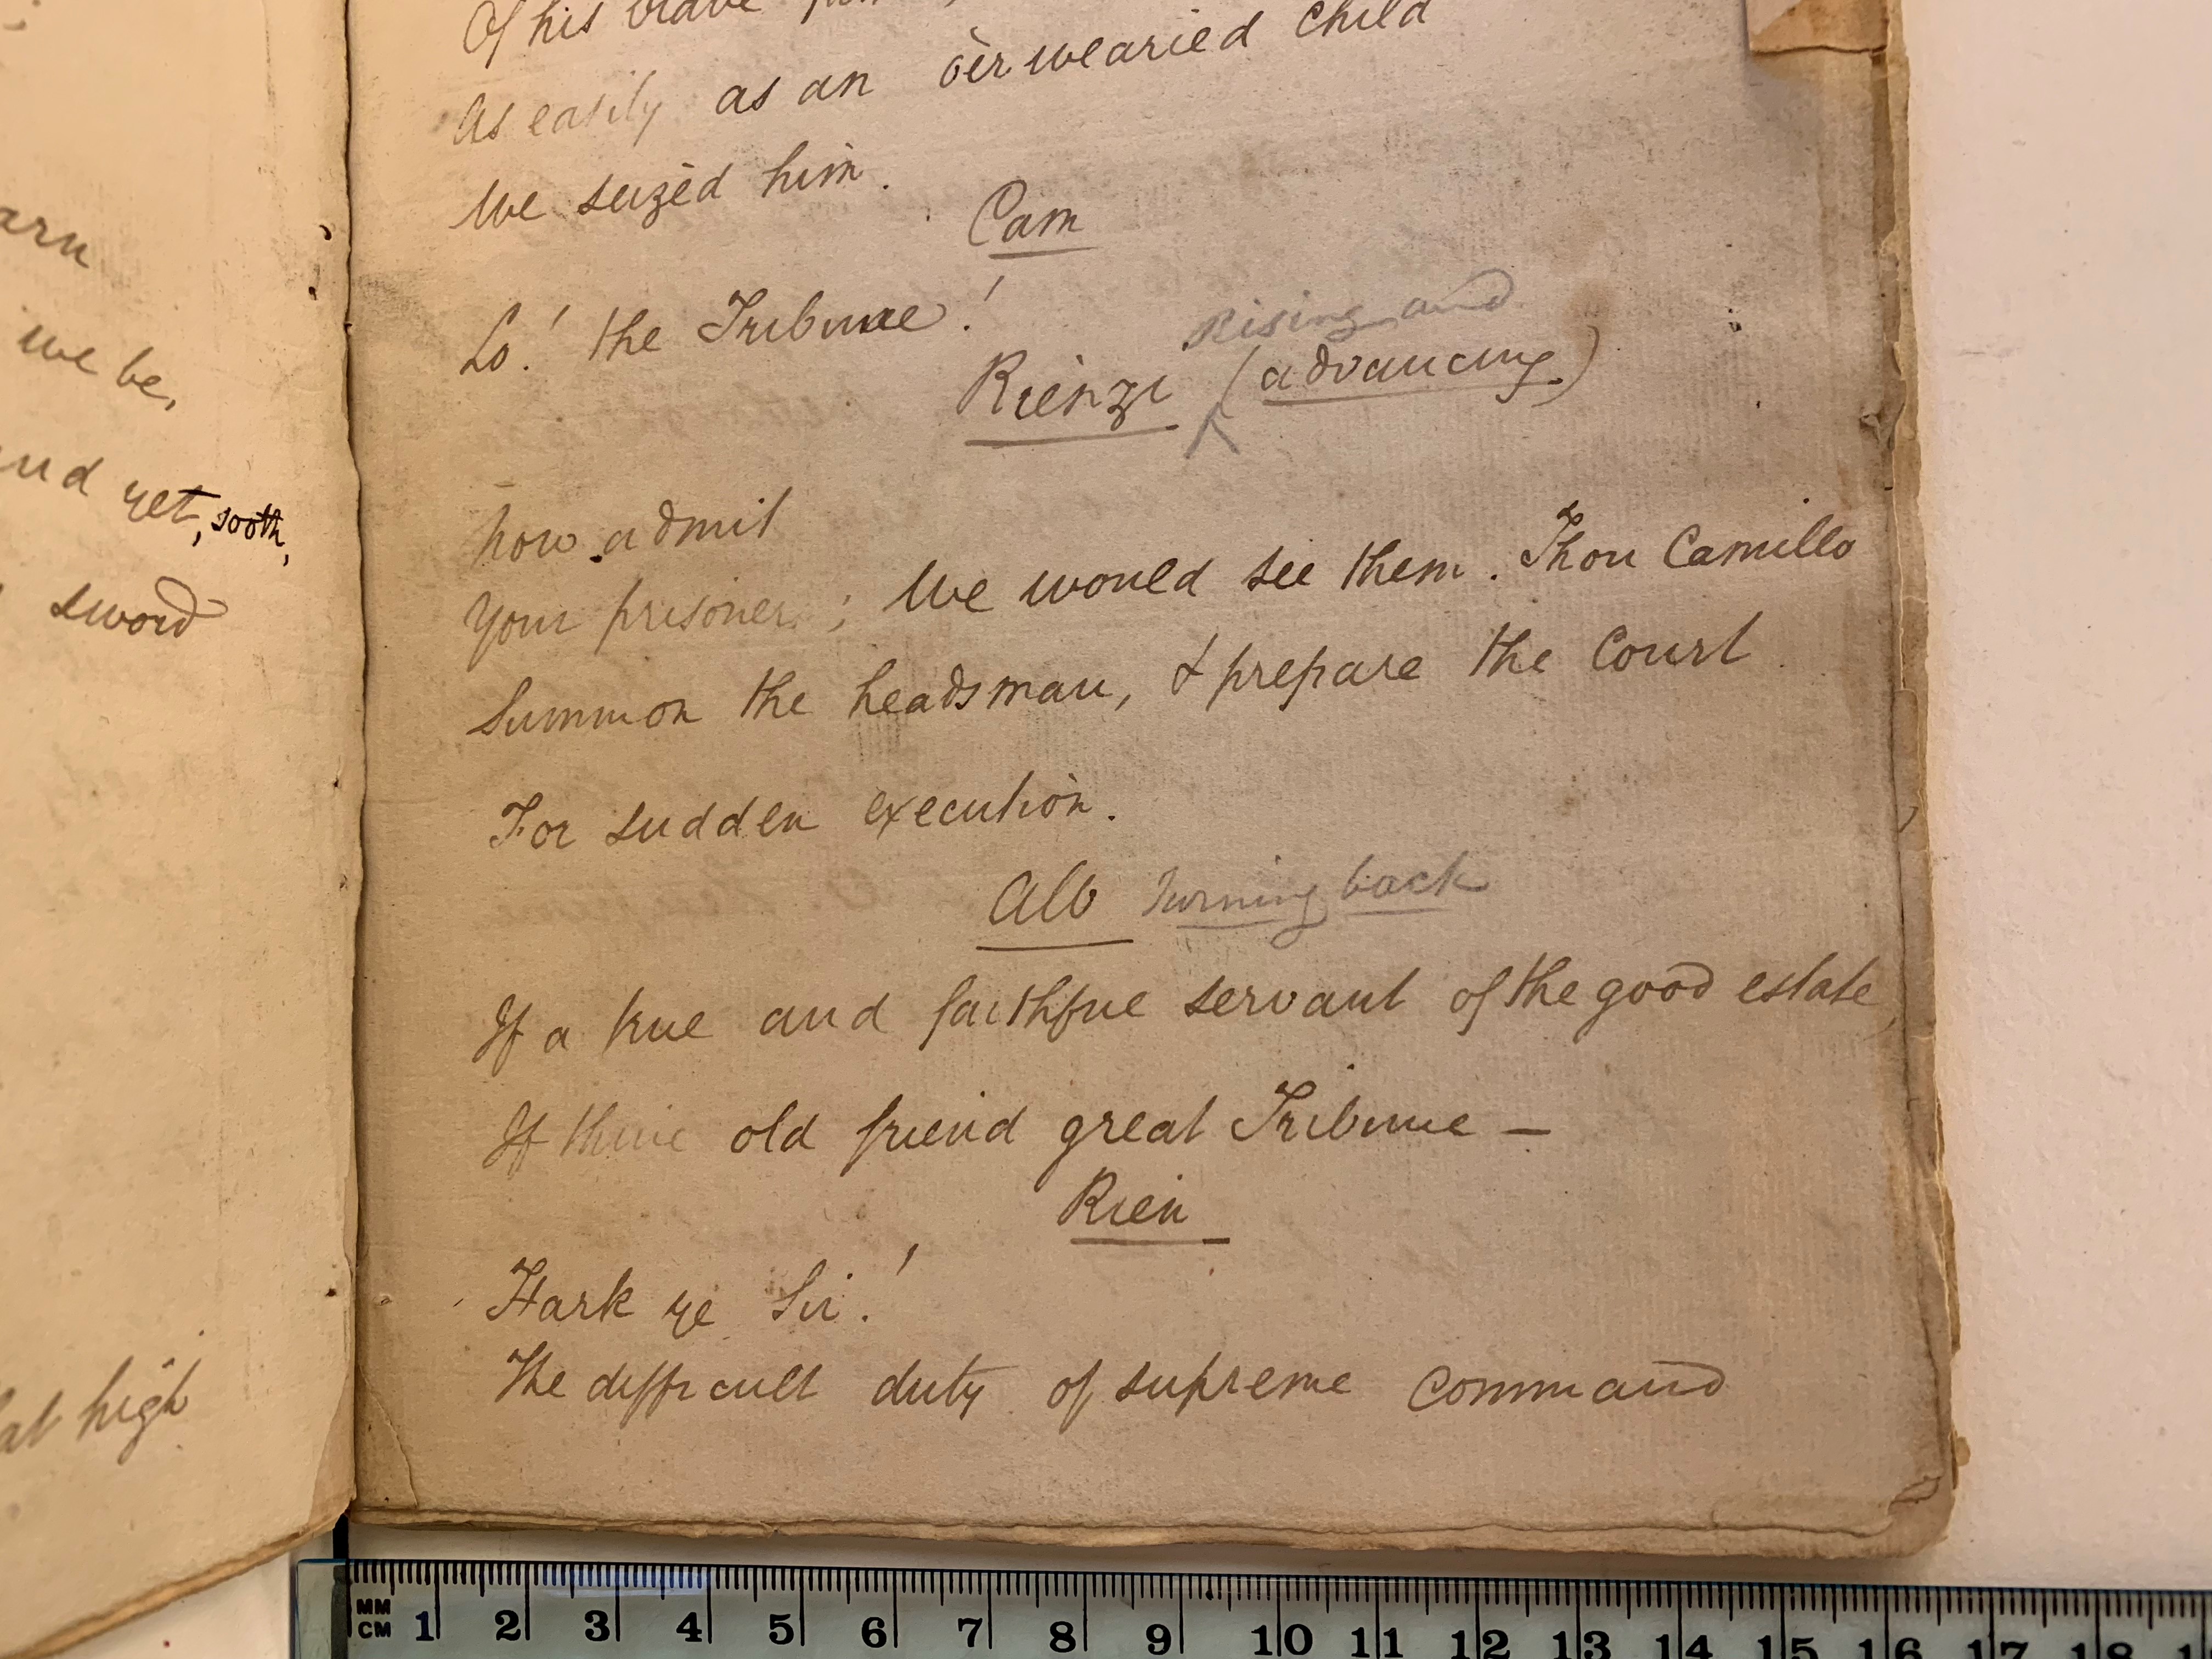 arn
we be,
and yet, sooth,
sword
at high
Of his brave
As easily as an o'erwearied child
We seized him.
Cam
Lo! the Tribune!
Rising and
Rienzi (advancing)
Now admit
Your prisoner; We would see them. Thou Camillo
Summon the headsman, & prepare the Court
For sudden execution.
Alb turning back
If a true and faithful servant of the good estate,
If thine old friend great Tribune —
Rien
Hark ye Sir!
The difficult duty of supreme command
MM
CM 1 2 3 4 5 6 7 8 9 10 11 12 13 14 15 16 17 18